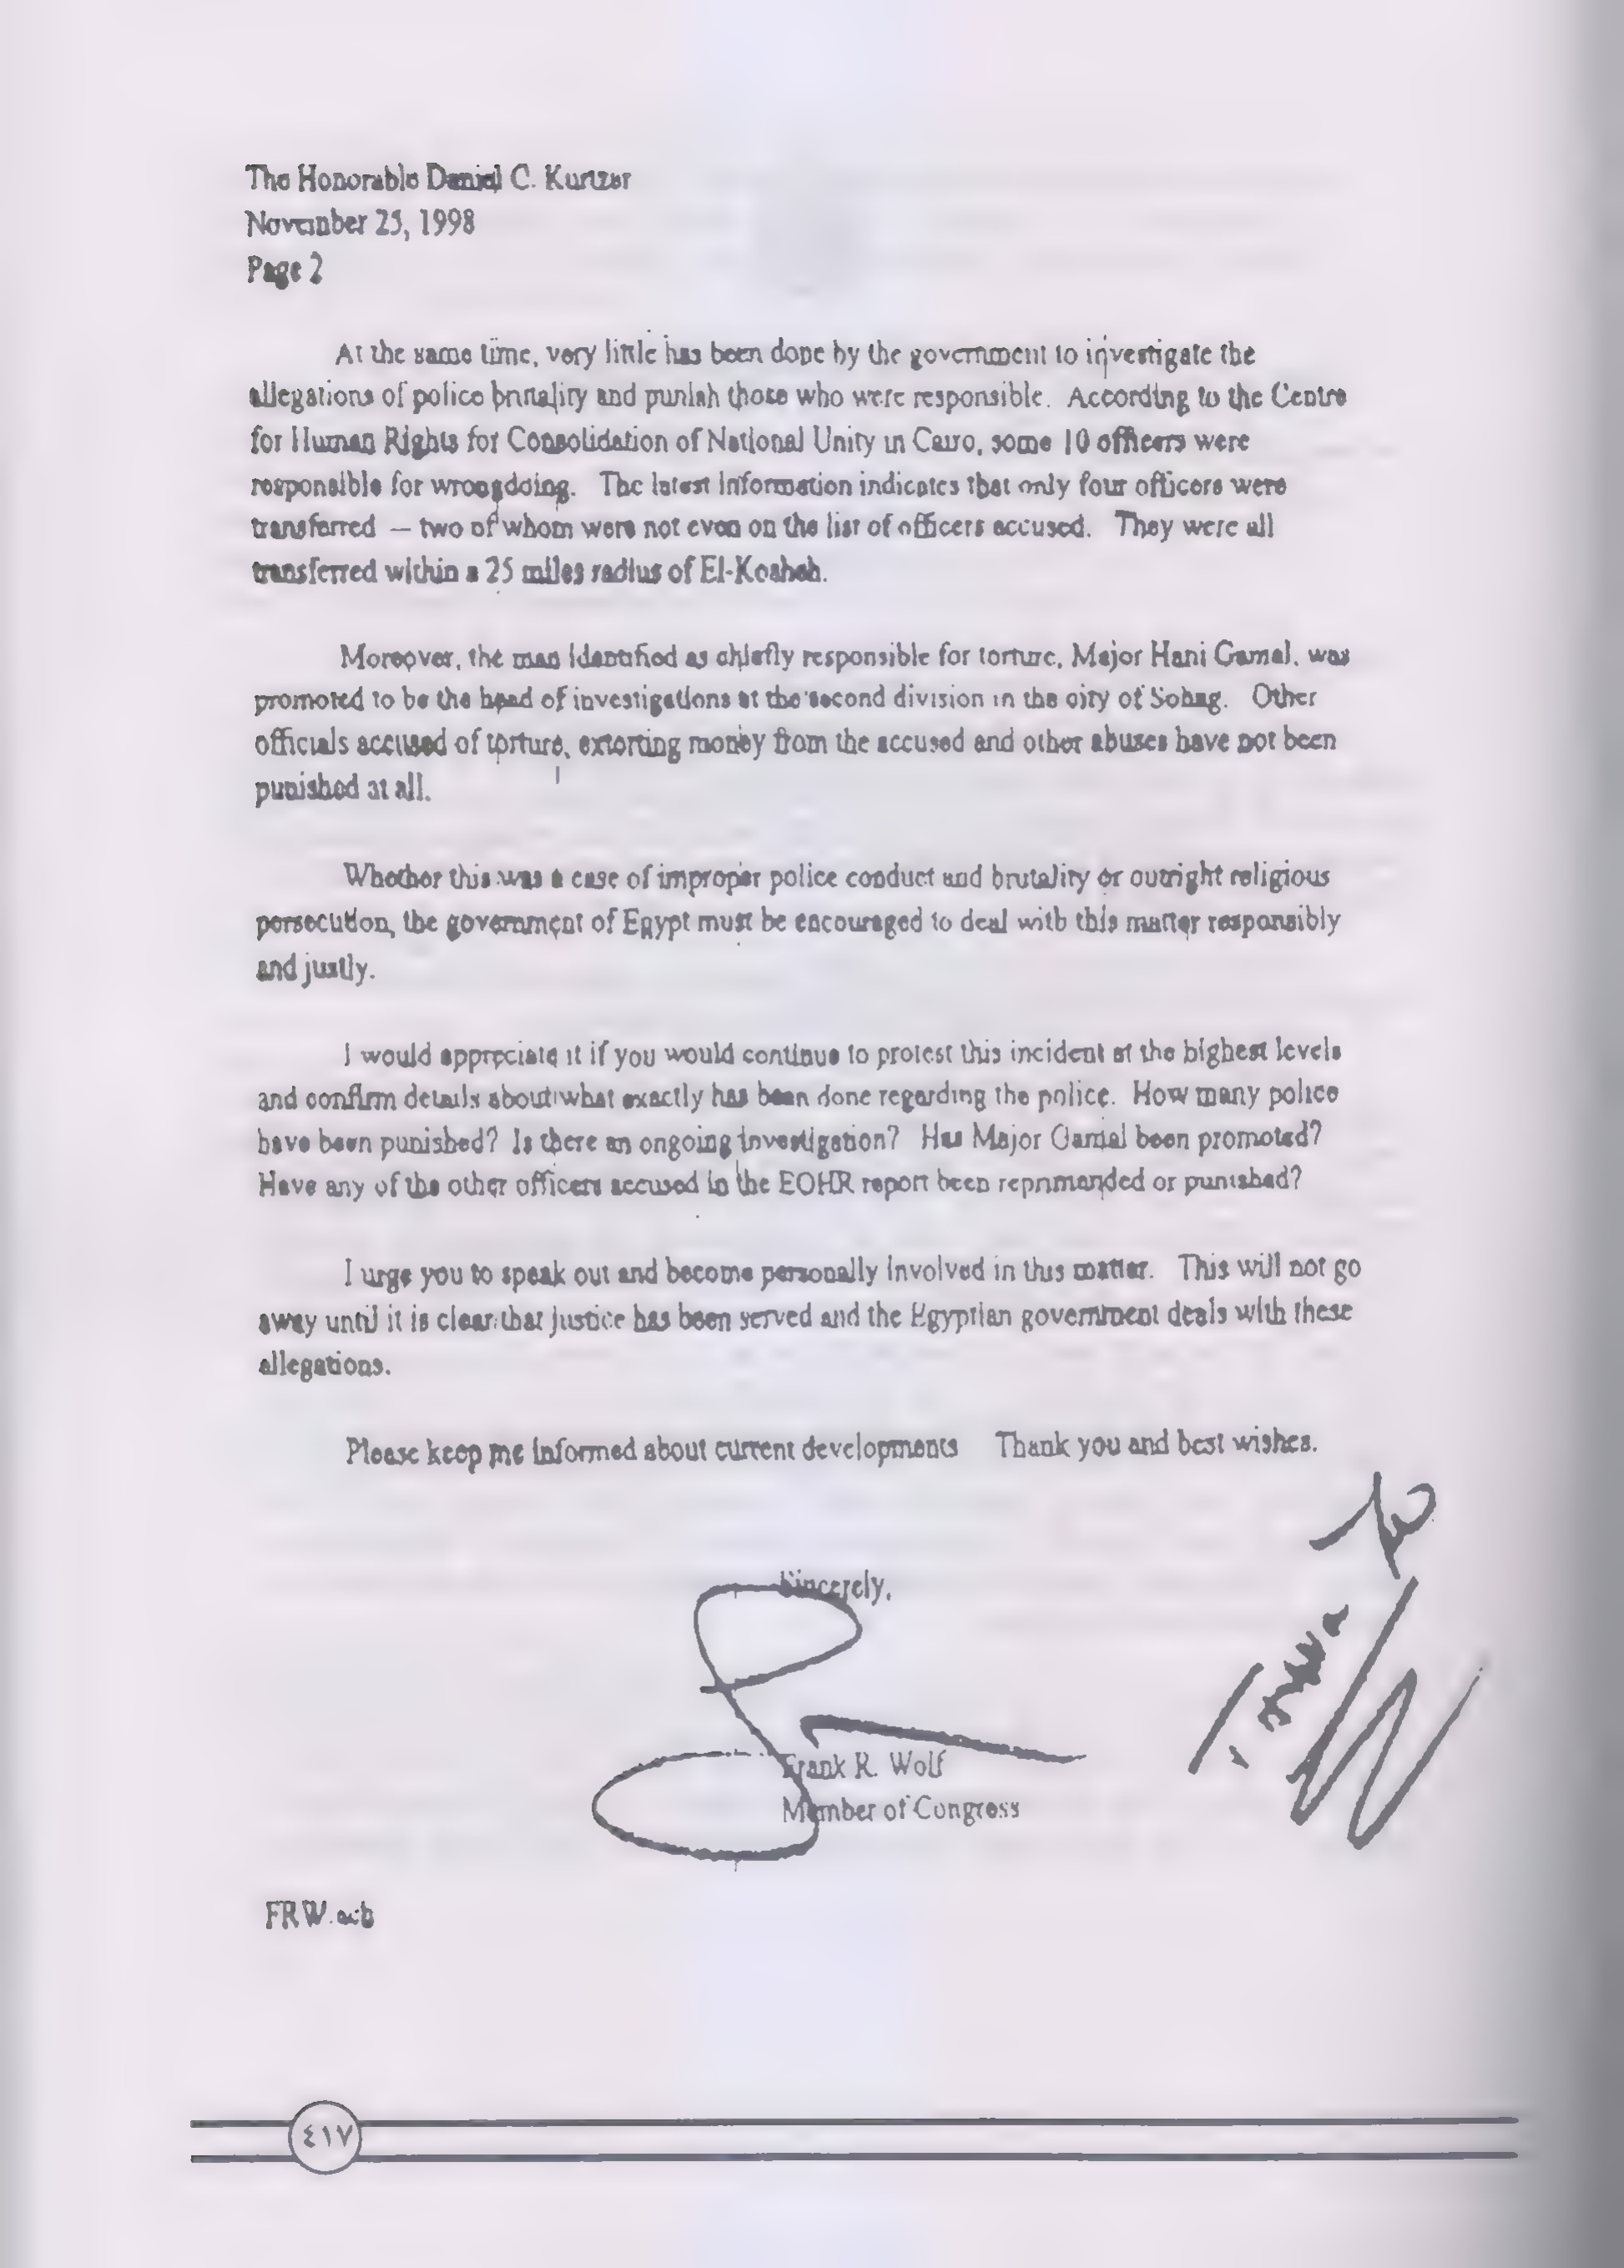 The Honorable Daniel C. Kurtzer
November 25, 1998
Page 2
At the same time, very little has been done by the government to investigate the
allegations of police brutality and punish those who were responsible. According to the Centre
for Human Rights for Consolidation of National Unity in Cairo, some 10 officers were
responsible for wrongdoing. The latest information indicates that only four officers were
transferred – two of whom were not even on the list of officers accused. They were all
transferred within a 25 miles radius of El-Kosheh.
Moreover, the man identified as chiefly responsible for torture, Major Hani Gamal, was
promoted to be the head of investigations at the second division in the city of Sohag. Other
officials accused of torture, extorting money from the accused and other abuses have not been
punished at all.
Whether this was a case of improper police conduct and brutality or outright religious
persecution, the government of Egypt must be encouraged to deal with this matter responsibly
and justly.
I would appreciate it if you would continue to protest this incident at the highest levels
and confirm details about what exactly has been done regarding the police. How many police
have been punished? Is there an ongoing investigation? Has Major Gamal been promoted?
Have any of the other officers accused in the EOHR report been reprimanded or punished?
I urge you to speak out and become personally involved in this matter. This will not go
away until it is clear that justice has been served and the Egyptian government deals with these
allegations.
Please keep me informed about current developments Thank you and best wishes.
Sincerely,
Frank R. Wolf
Member of Congress
FRW
٤١٧